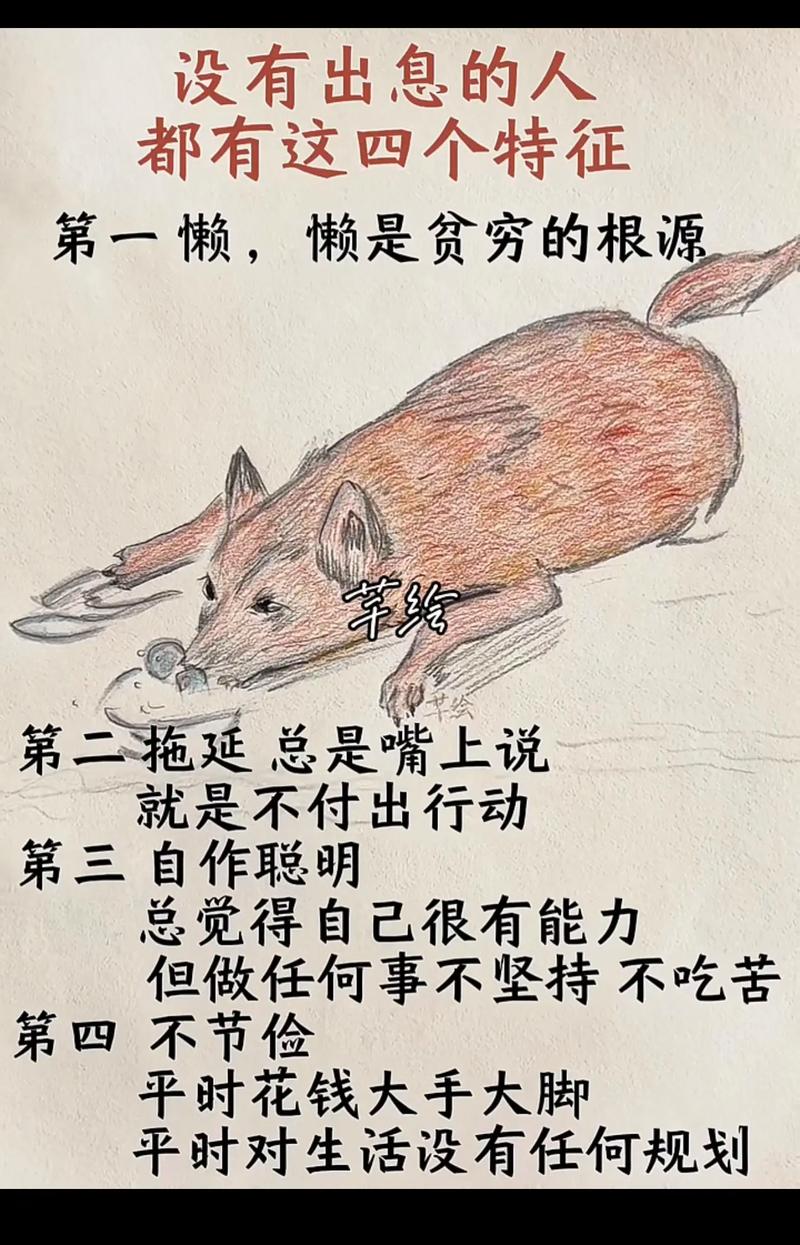 没有出息的人
都有这四个特征
第一 懒，懒是贫穷的根源
芊绘
芊绘
第二 拖延 总是嘴上说
就是不付出行动
第三 自作聪明
总觉得自己很有能力
但做任何事不坚持 不吃苦
第四 不节俭
平时花钱大手大脚
平时对生活没有任何规划